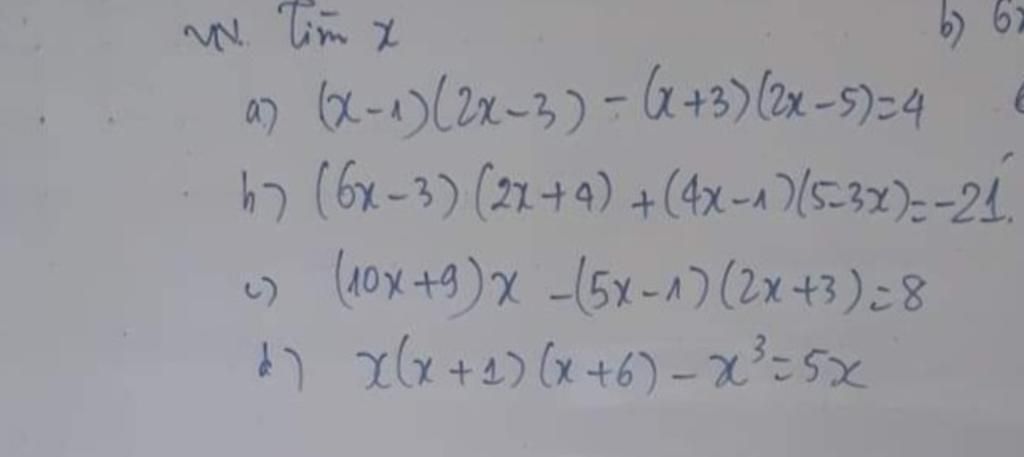 Tìm x
b) 6x
a) (x-1)(2x-3) - (x+3)(2x-5)=4
b) (6x-3)(2x+4) + (4x-1)(5-3x)=-21.
c) (10x+9)x - (5x-1)(2x+3)=8
d) x(x+1)(x+6) - x³=5x